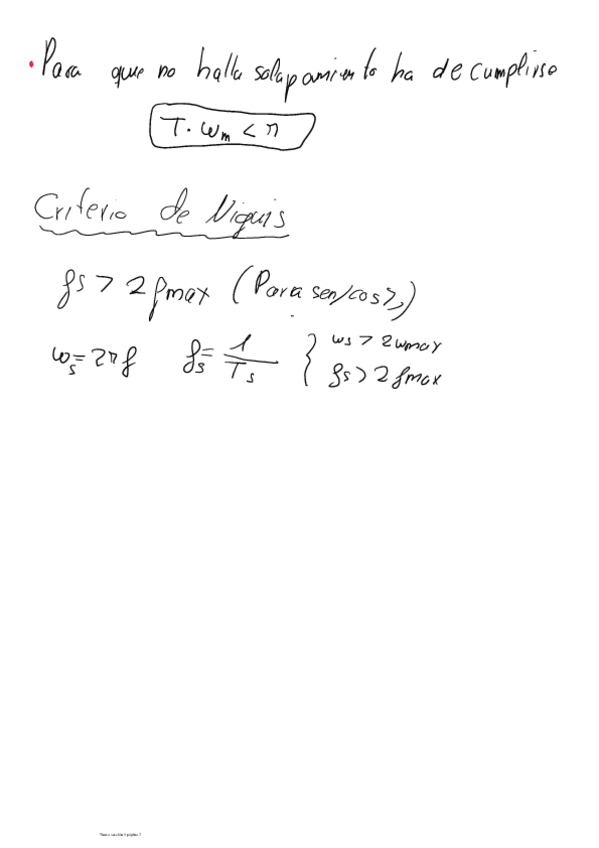 · Para que no halla solapamiento ha de cumplirse
T · ωm < π
Criterio de Niquis
fs > 2 fmax (Para sen/cos >,)
ωs = 2πf fs = 1/Ts { ωs > 2 ωmax
fs > 2 fmax